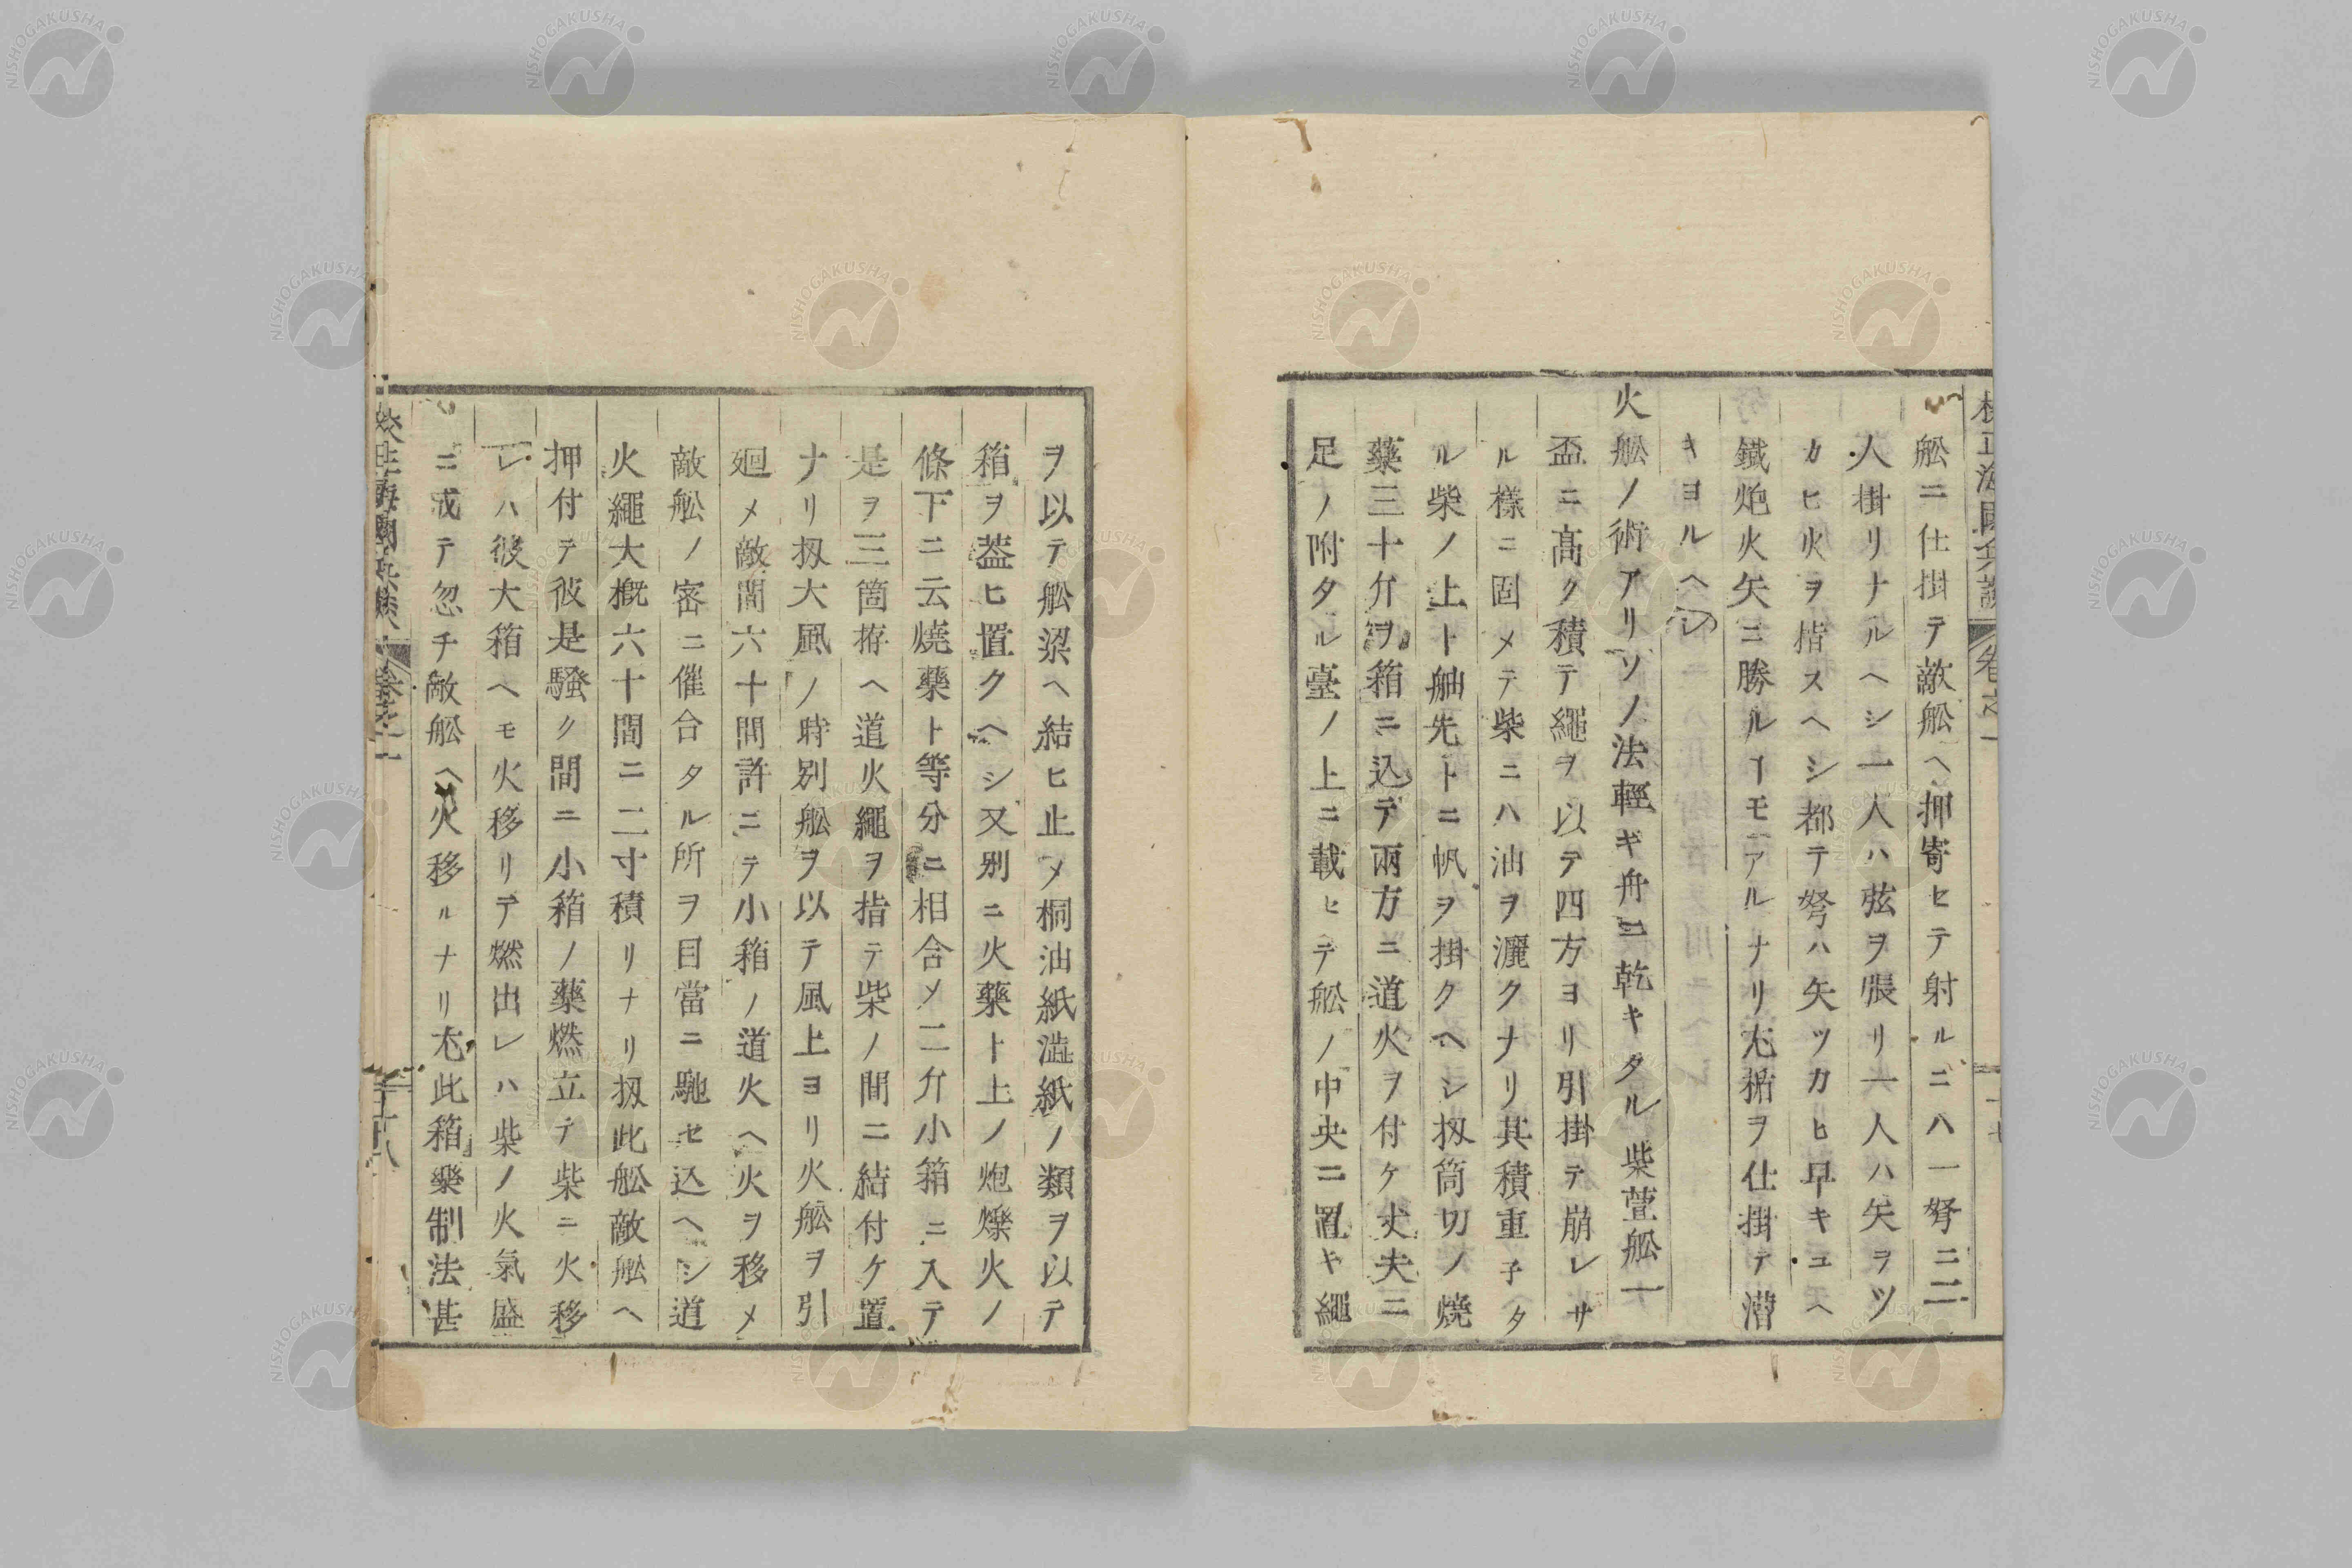 舩ニ仕掛テ敵舩ヘ押寄セテ射ルニハ一弩ニ二
人掛リナルヘシ一人ハ弦ヲ張リ一人ハ矢ヲツ
カヒ火ヲ指スヘシ都テ弩ハ矢ツカヒ早キユヘ
鐵炮火矢ニ勝ルヿモアルナリ尤楯ヲ仕掛テ潜
キヨルヘシ
火舩ノ術アリソノ法輕キ舟ニ乾キタル柴萱舩一
盃ニ髙ク積テ繩ヲ以テ四方ヨリ引掛テ崩レサ
ル樣ニ固メテ柴ニハ油ヲ灑クナリ其積重子タ
ル柴ノ上ト舳先トニ帆ヲ掛クヘシ扨筒切ノ燒
藥三十斤ヲ箱ニ込テ兩方ニ道火ヲ付ケ丈夫ニ
足ノ附タル臺ノ上ニ載セテ舩ノ中央ニ置キ繩
ヲ以テ舩梁ヘ結ヒ止メ桐油紙澁紙ノ類ヲ以テ
箱ヲ葢ヒ置クヘシ又別ニ火藥ト上ノ炮爍火ノ
條下ニ云燒藥ト等分ニ相合メ二斤小箱ニ入テ
是ヲ三箇拵ヘ道火繩ヲ指テ柴ノ間ニ結付ケ置
ナリ扨大風ノ時別舩ヲ以テ風上ヨリ火舩ヲ引
廻メ敵間六十間許ニテ小箱ノ道火ヘ火ヲ移メ
敵舩ノ密ニ催合タル所ヲ目當ニ馳セ込ヘシ道
火繩大概六十間ニ二寸積リナリ扨此舩敵舩ヘ
押付テ彼是騷ク間ニ小箱ノ藥燃立テ柴ニ火移
レハ彼大箱ヘモ火移リテ燃出レハ柴ノ火氣盛
ニ成テ忽チ敵舩ヘ火移ルナリ尤此箱藥制法甚
NISHOGAKUSHA